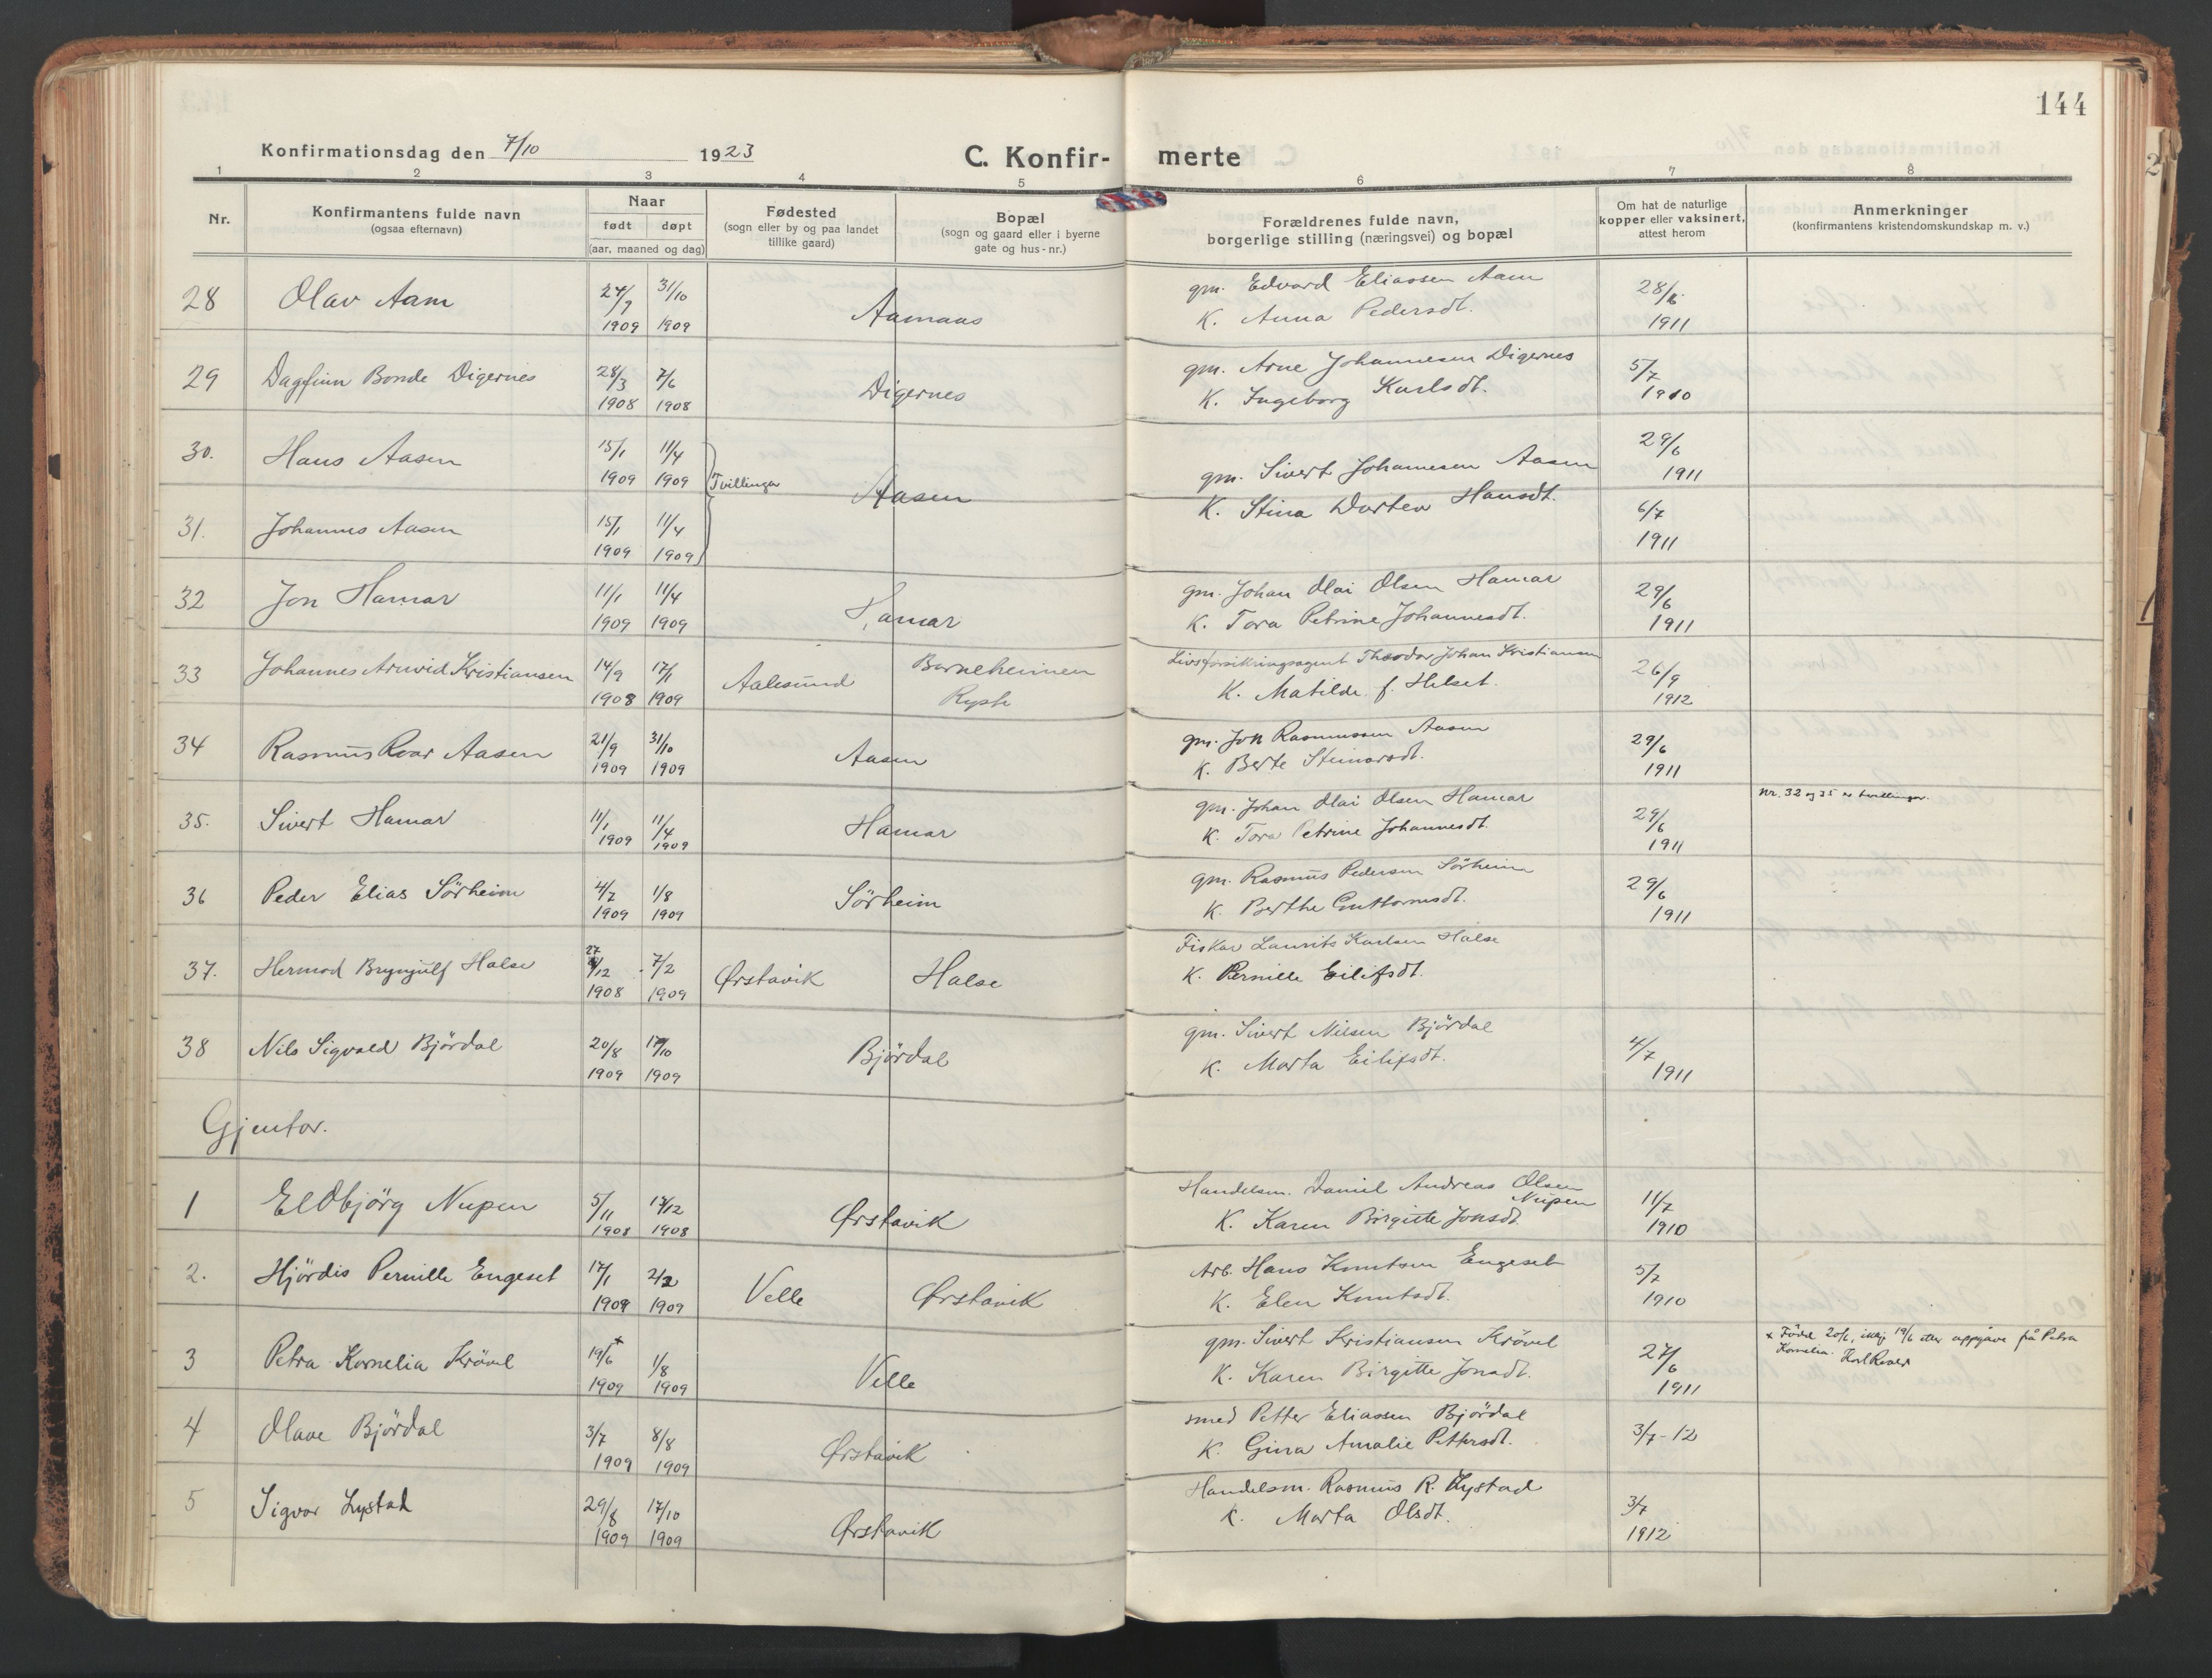 144
Konfirmationsdag den 7/10 1923 C. Konfirmerte
1 2 3 4 5 6 7 8
Nr. Konfirmantens fulde navn (ogsaa efternavn) Naar født døpt (aar, maaned og dag) Fødested (sogn eller by og paa landet tillike gaard) Bopæl (sogn og gaard eller i byerne gate og hus-nr.) Forældrenes fulde navn, borgerlige stilling (næringsvei) og bopæl Om hat de naturlige kopper eller vaksinert, attest herom Anmerkninger (konfirmantens kristendomskundskap m. v.)
28 Olav Aam 1909 31/10 1909 Aamaas gm. Edvard Eliassen Aam
K. Anna Pedersdt. 1911
29 Dagfinn Bonde Digernes 28/3 1908 7/6 1908 Digernes gm. Arne Johannesen Digernes 5/7
K. Ingeborg Karlsdt. 1910
30. Hans Aasen 15/1 1909 11/4 1909 Tvillingar Aasen gm. Sivert Johannesen Aasen 29/6 1911
K. Stina Dortea Hansdt.
31. Johannes Aasen 15/1 1909 11/4 1909 6/7 1911
32 Jon Hamar 11/1 1909 11/4 1909 Hamar gm. Johan Olai Olsen Hamar 29/6
K. Tora Petrine Johannesdt. 1911
33 Johannes Arnvid Kristiansen 14/9 1908 17/1 1909 Aalesund Barneheimen Livsforsikringsagent Theodor Johan Kristiansen 26/9
K. Matilde f. Helset. 1912
34 Rasmus Roar Aasen 21/9 1909 31/10 1909 Aasen gm. Jon Rasmussen Aasen 29/6
K. Berte Steinarsdt. 1911
35. Sivert Hamar 11/1 1909 11/4 1909 Hamar gm. Johan Olai Olsen Hamar 29/6 Nr. 32 og 35 er tvillingar.
K. Tora Petrine Johannesdt. 1911
36 Peder Elias Sörheim 4/7 1909 1/8 1909 Sörheim gm. Rasmus Pedersen Sörheim 29/6
K. Berthe Guttormsdt. 1911
37. Hermod Brynjulf Halse 27/12 1908 7/2 1909 Ørstavik Halse Fiskar Laurits Karlsen Halse
K. Pernille Eilifsdt.
38 Nils Sigvald Björdal 20/8 1909 17/10 1909 Björdal gm. Sivert Nilsen Björdal 4/7
K. Marta Eilifsdt. 1911
Gjentor.
1 Eldbjörg Nupen 5/11 1908 1908 Ørstavik Handelsm. Daniel Andreas Olsen Nupen 11/7
K. Karen Birgitte Jonsdt. 1910
2. Hjördis Pernille Engeset 17/1 1909 1909 Velle Ørstavik Arb. Hans Knutsen Engeset 5/7
K. Elen Knutsdt. 1910
3 Petra Kornelia Krövel 19/6 x 1909 1/8 1909 Velle gm. Sivert Kristiansen Krövel 27/6 x Född 20/6, ikkje 19/6 etter uppgåve frå Petra
K. Karen Birgitte Jonsdt. 1911 Kornelia.
4 Olave Björdal 3/7 1909 8/8 1909 Ørstavik smed Petter Eliassen Björdal 3/7-12
K. Gina Amalie Pettersdt.
5 Sigvor Lystad 29/8 1909 17/10 1909 Ørstavik Handelsm. Rasmus R. Lystad 3/7
K. Marta Olsdt. 1912